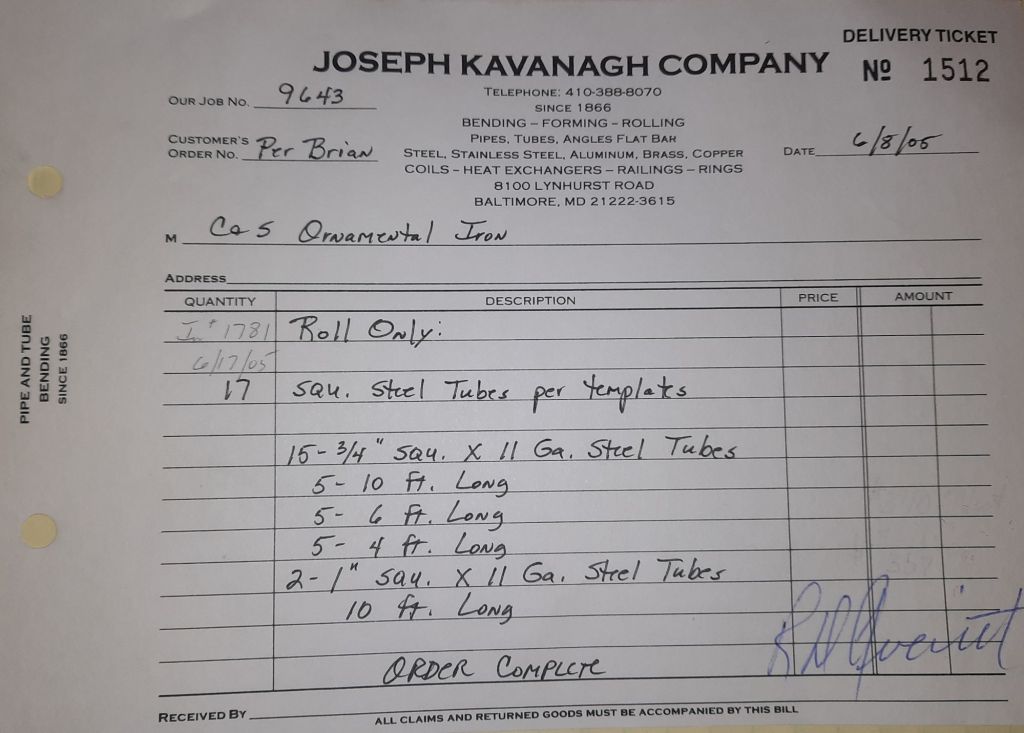 DELIVERY TICKET
JOSEPH KAVANAGH COMPANY
Nº 1512
OUR JOB NO. 9643
TELEPHONE: 410-388-8070
SINCE 1866
BENDING – FORMING – ROLLING
CUSTOMER'S ORDER NO. Per Brian
PIPES, TUBES, ANGLES FLAT BAR
STEEL, STAINLESS STEEL, ALUMINUM, BRASS, COPPER
DATE 6/8/05
COILS – HEAT EXCHANGERS – RAILINGS – RINGS
8100 LYNHURST ROAD
BALTIMORE, MD 21222-3615
M Ornamental Iron
ADDRESS
QUANTITY DESCRIPTION PRICE AMOUNT
# 1781 Roll Only:
6/17/05
17 squ. Steel Tubes per templates
15- 3/4" squ. X 11 Ga. Steel Tubes
5- 10 ft. Long
5- 6 ft. Long
5- 4 ft. Long
2- 1" squ. X 11 Ga. Steel Tubes
10 ft. Long
ORDER COMPLETE
RECEIVED BY
ALL CLAIMS AND RETURNED GOODS MUST BE ACCOMPANIED BY THIS BILL
PIPE AND TUBE
BENDING
SINCE 1866